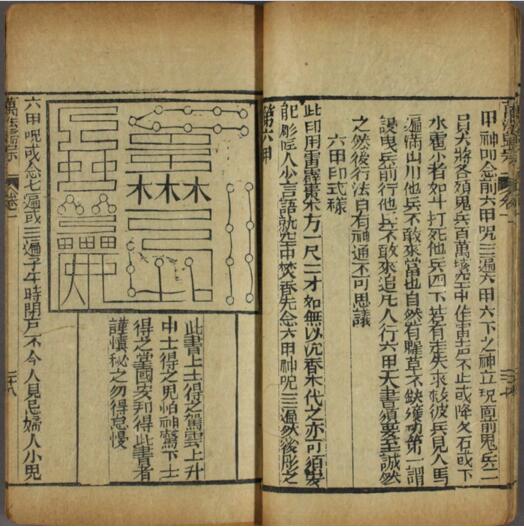 甲神即念前六甲呪三遍六甲六下之神立現面前鬼兵二
員大將各領鬼兵百萬騰空中作雷声不止或降火石或下
水雹少者如斗打死他兵四下若有走失來救彼兵見人馬
遍滿山川他兵不敢來當也自然有糧草不缺獲功第一謂
兵前行他兵不敢來追凡人行六甲天書須要至誠然
之然後行法自有神通不可思議
六甲印式樣
此印用雷霹棗木方一尺二寸如無以沉香木代之亦可須
彫匠人少言語就空中焚香先念六甲神呪三遍然後彫之
第六甲
木木木
此書上士得之駕雲上升
中士得之鬼怕神驚下士
得之國安邦得此書者
謹慎秘之勿得怠慢
六甲呪或念七遍或三遍子午時閉戶不令人見尼婦人小兒
萬法歸宗